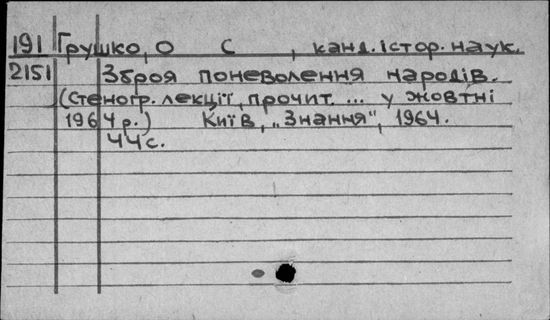 191 Грушко, О С , канд. істор. наук.
2151 Зброя поневолення народів.
(Стеногр. лекції, прочит. ... у жовтні
1964 р.) Київ, „Знання", 1964.
44 с.